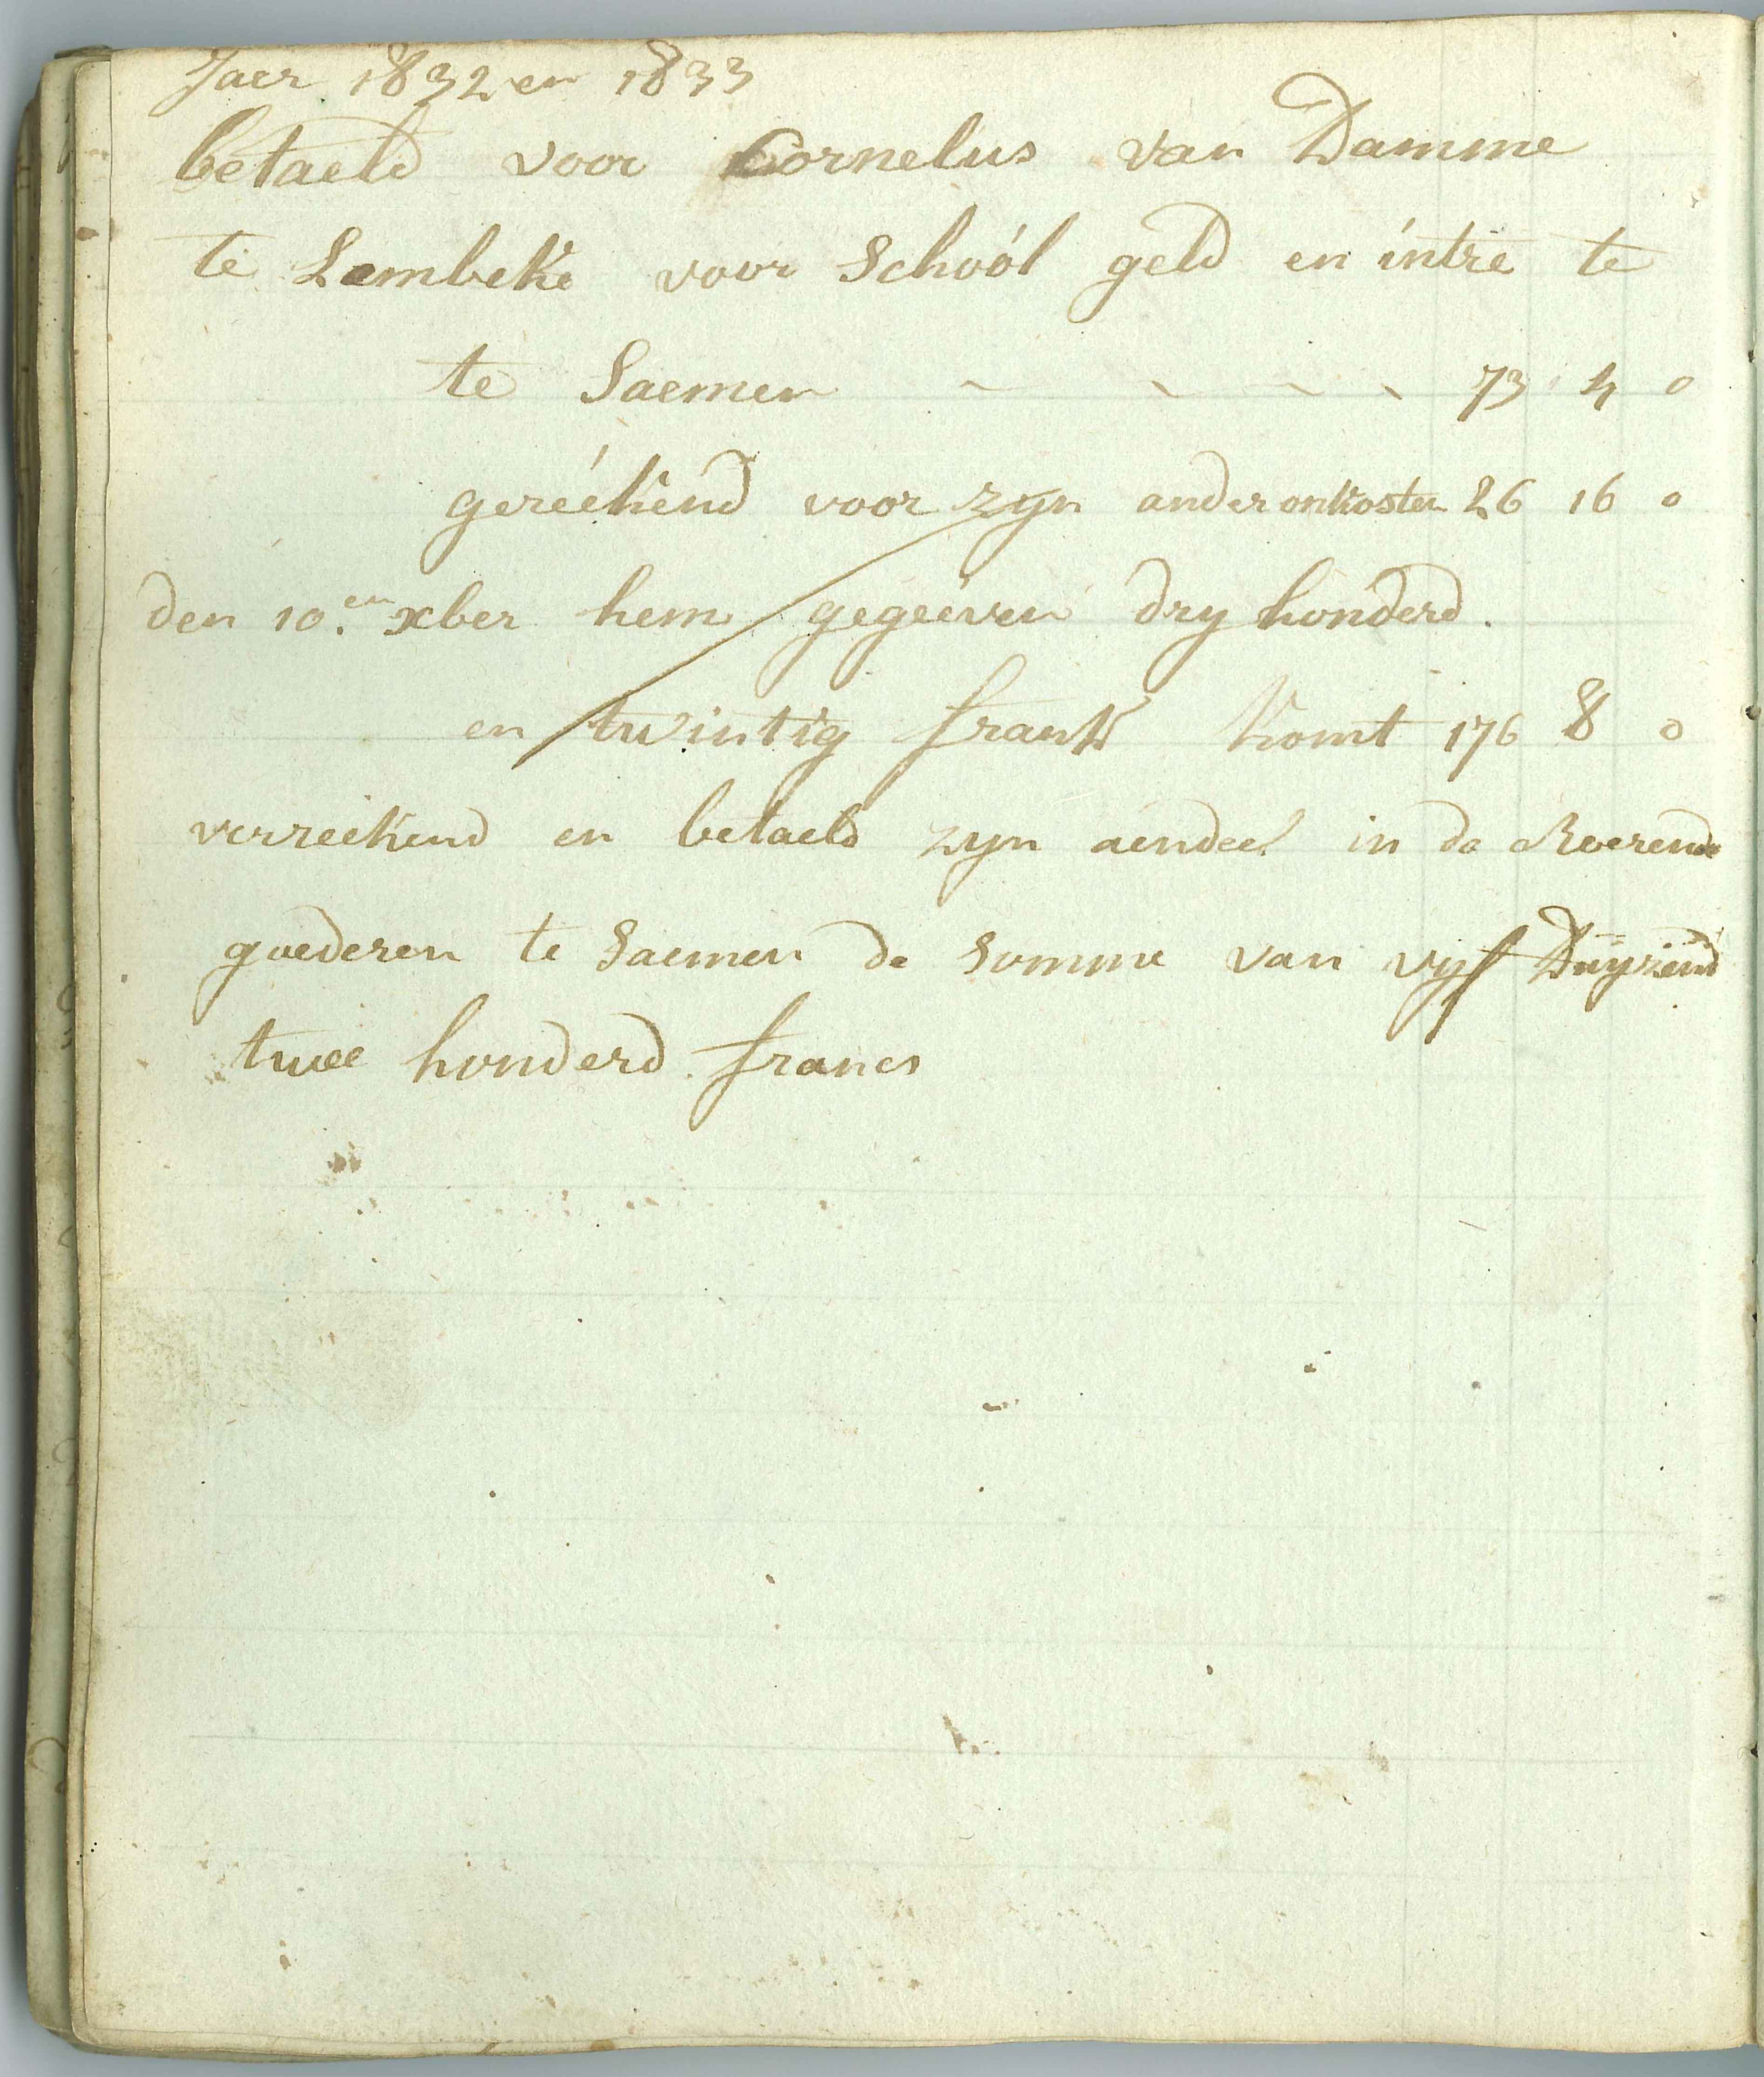 Jaer 1832 en 1833
betaeld voor Cornelus van Damme
te Lembeke voor Schoól geld en intre te
te Saemen 73 4 0
gereékend voor zyn ander onkosten 26 16 0
den 10.en xber hem gegeeven dry honderd.
en twintig frank komt 176 8 0
verreekend en betaeld zyn aendeel in de Roerende
goederen te Saemen de Somme van vyf Duyzend
twee honderd francs